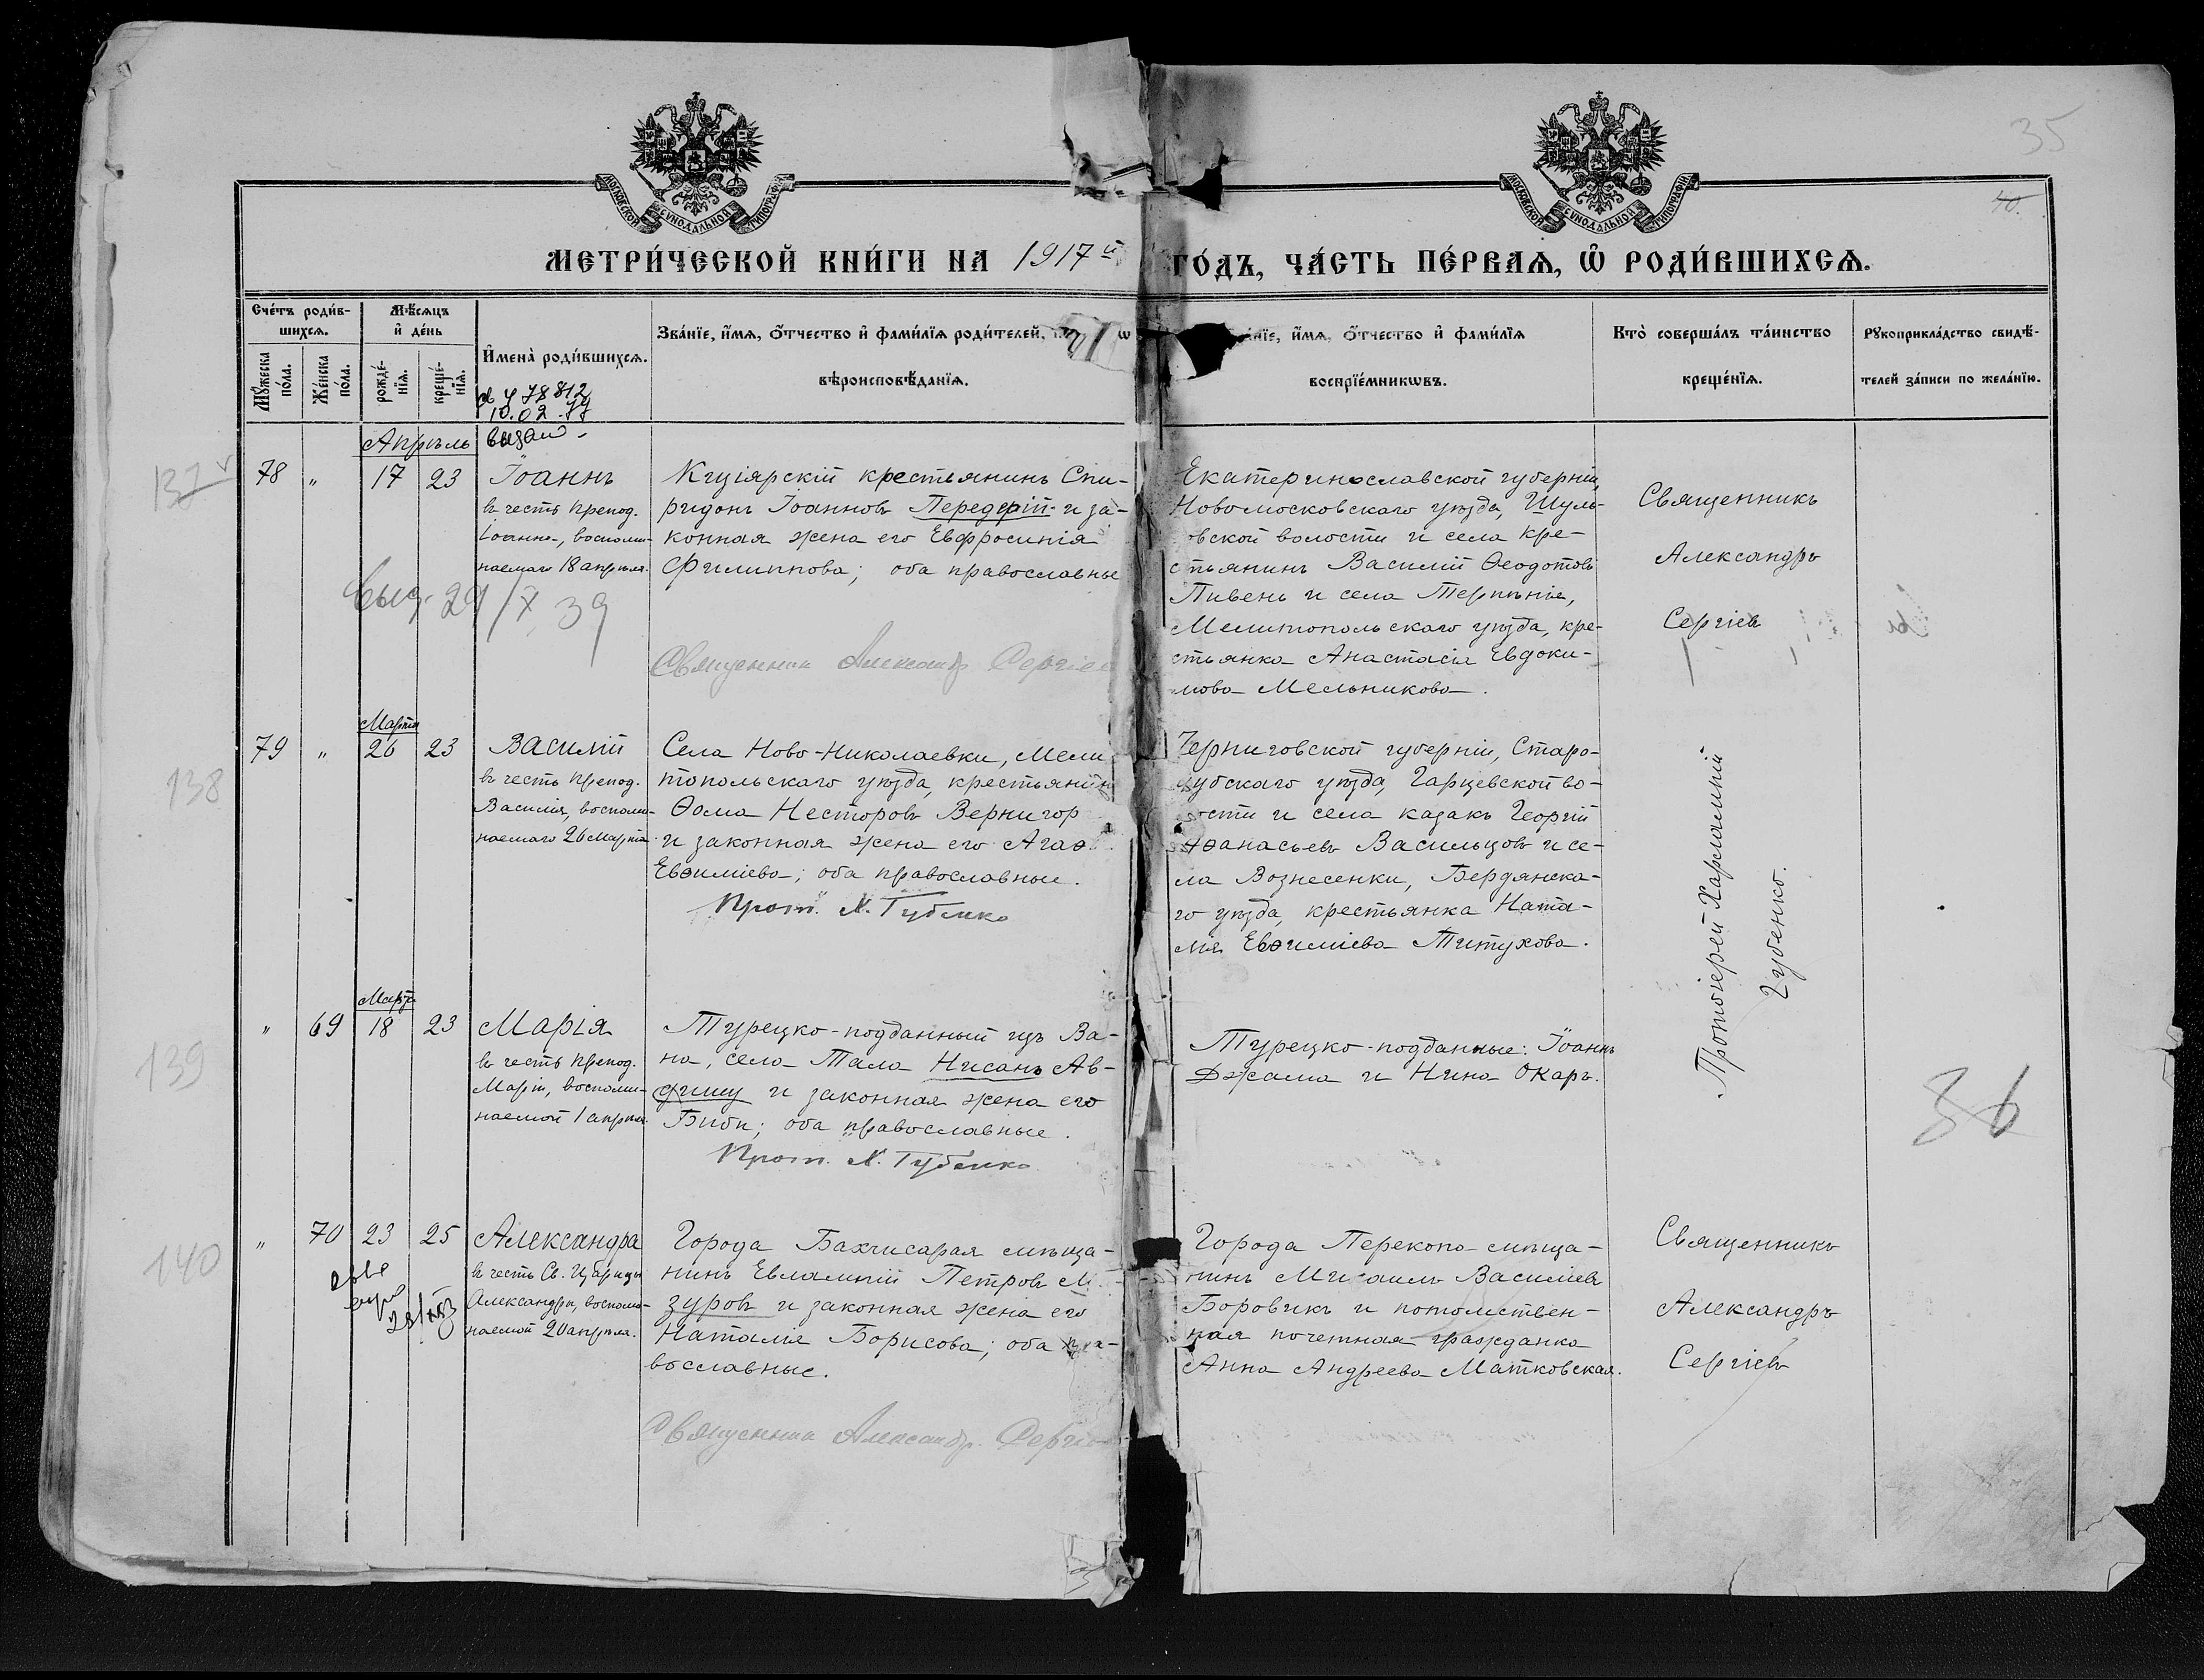 35
40.
МОСКОВСКОЙ СѴНОДАЛЬНОЙ ТИПОГРАФІИ
МОСКОВСКОЙ СѴНОДАЛЬНОЙ ТИПОГРАФІИ
МЕТРИ́ЧЕСКОЙ КНИ́ГИ НА 1917й ГО́ДЪ, ЧА́СТЬ ПЕ́РВАѦ, Ѡ҆ РОДИ́ВШИХСѦ.
Сче́тъ роди́в-
шихсѧ.
Мꙋ́жеска по́ла.
Же́нска по́ла.
Мѣ́сѧцъ
и҆ де́нь
рожде́-
нїѧ.
креще́-
нїѧ.
И҆мена̀ роди́вшихсѧ.
Зва́нїе, и҆́мѧ, ѻ҆́тчество и҆ фами́лїѧ роди́телей,
вѣроисповѣ́данїѧ.
и҆́мѧ, ѻ҆́тчество и҆ фами́лїѧ
воспрїе́мникѡвъ.
Кто̀ соверша́лъ та́инство
креще́нїѧ.
Рꙋкоприкла́дство свидѣ́-
телей за́писи по жела́нїю.
78812
10.02.
Апрѣль
137
78 " 17 23
Іоаннъ
въ честь препод.
Іоанна, воспоми-
наемаго 18 апрѣля.
29/X 39
крестьянинъ Спи-
ридонъ Іоанновъ Передерій и за-
конная жена его Евфросинія
Филиппова; оба православные
Священник Александр Сергіев
Екатеринославской губерніи,
Новомосковскаго уѣзда, Шуль-
овской волости и села кре-
стьянинъ Василій Ѳеодотовъ
Пивень и села Терпѣнія,
Мелитопольскаго уѣзда, кре-
стьянка Анастасія Евдоки-
мова Мельникова.
Священникъ
Александръ
Сергіевъ
138
Марта
79 " 26 23
Василій
въ честь препод.
Василія, воспоми-
наемаго 26 марта
Села Ново-Николаевки, Мели
топольскаго уѣзда, крестьянинъ
Ѳома Несторовъ Вернигор
и законная жена его Агаѳ
Евѳиміева; оба православные.
Прот. Х. Губенко
Черниговской губерніи, Старо-
дубскаго уѣзда, Гарцевской во-
лости и села казакъ Георгій
Аѳанасьевъ Васильцовъ и се-
ла Вознесенки, Бердянска-
го уѣзда, крестьянка Ната-
лія Евѳиміева Титухова.
Протоіерей Харлампій
Губенко.
139
Марта
" 69 18 23
Марія
въ честь препод.
Маріи, воспоми-
наемой 1 апрѣля.
Турецко-подданный изъ Ва-
на, села Тала Нисанъ Ав-
дишу и законная жена его
Биби; оба православные.
Прот. Х. Губенко
Турецко-подданные: Іоаннъ
Джама и Нина Окаръ.
36
140
" 70 23 25
Александра
въ честь Св. Царицы
Александры, воспоми-
наемой 20 апрѣля.
Города Бахчисарая мѣща-
нинъ Евлампій Петровъ
зуровъ и законная жена его
Наталія Борисова; оба пра-
вославные.
Священник Александр. Сергіев
Города Перекопа мѣща-
нинъ Михаилъ Василіевъ
Боровикъ и потомствен-
ная почетная гражданка
Анна Андреева Матковская.
Священникъ
Александръ
Сергіевъ